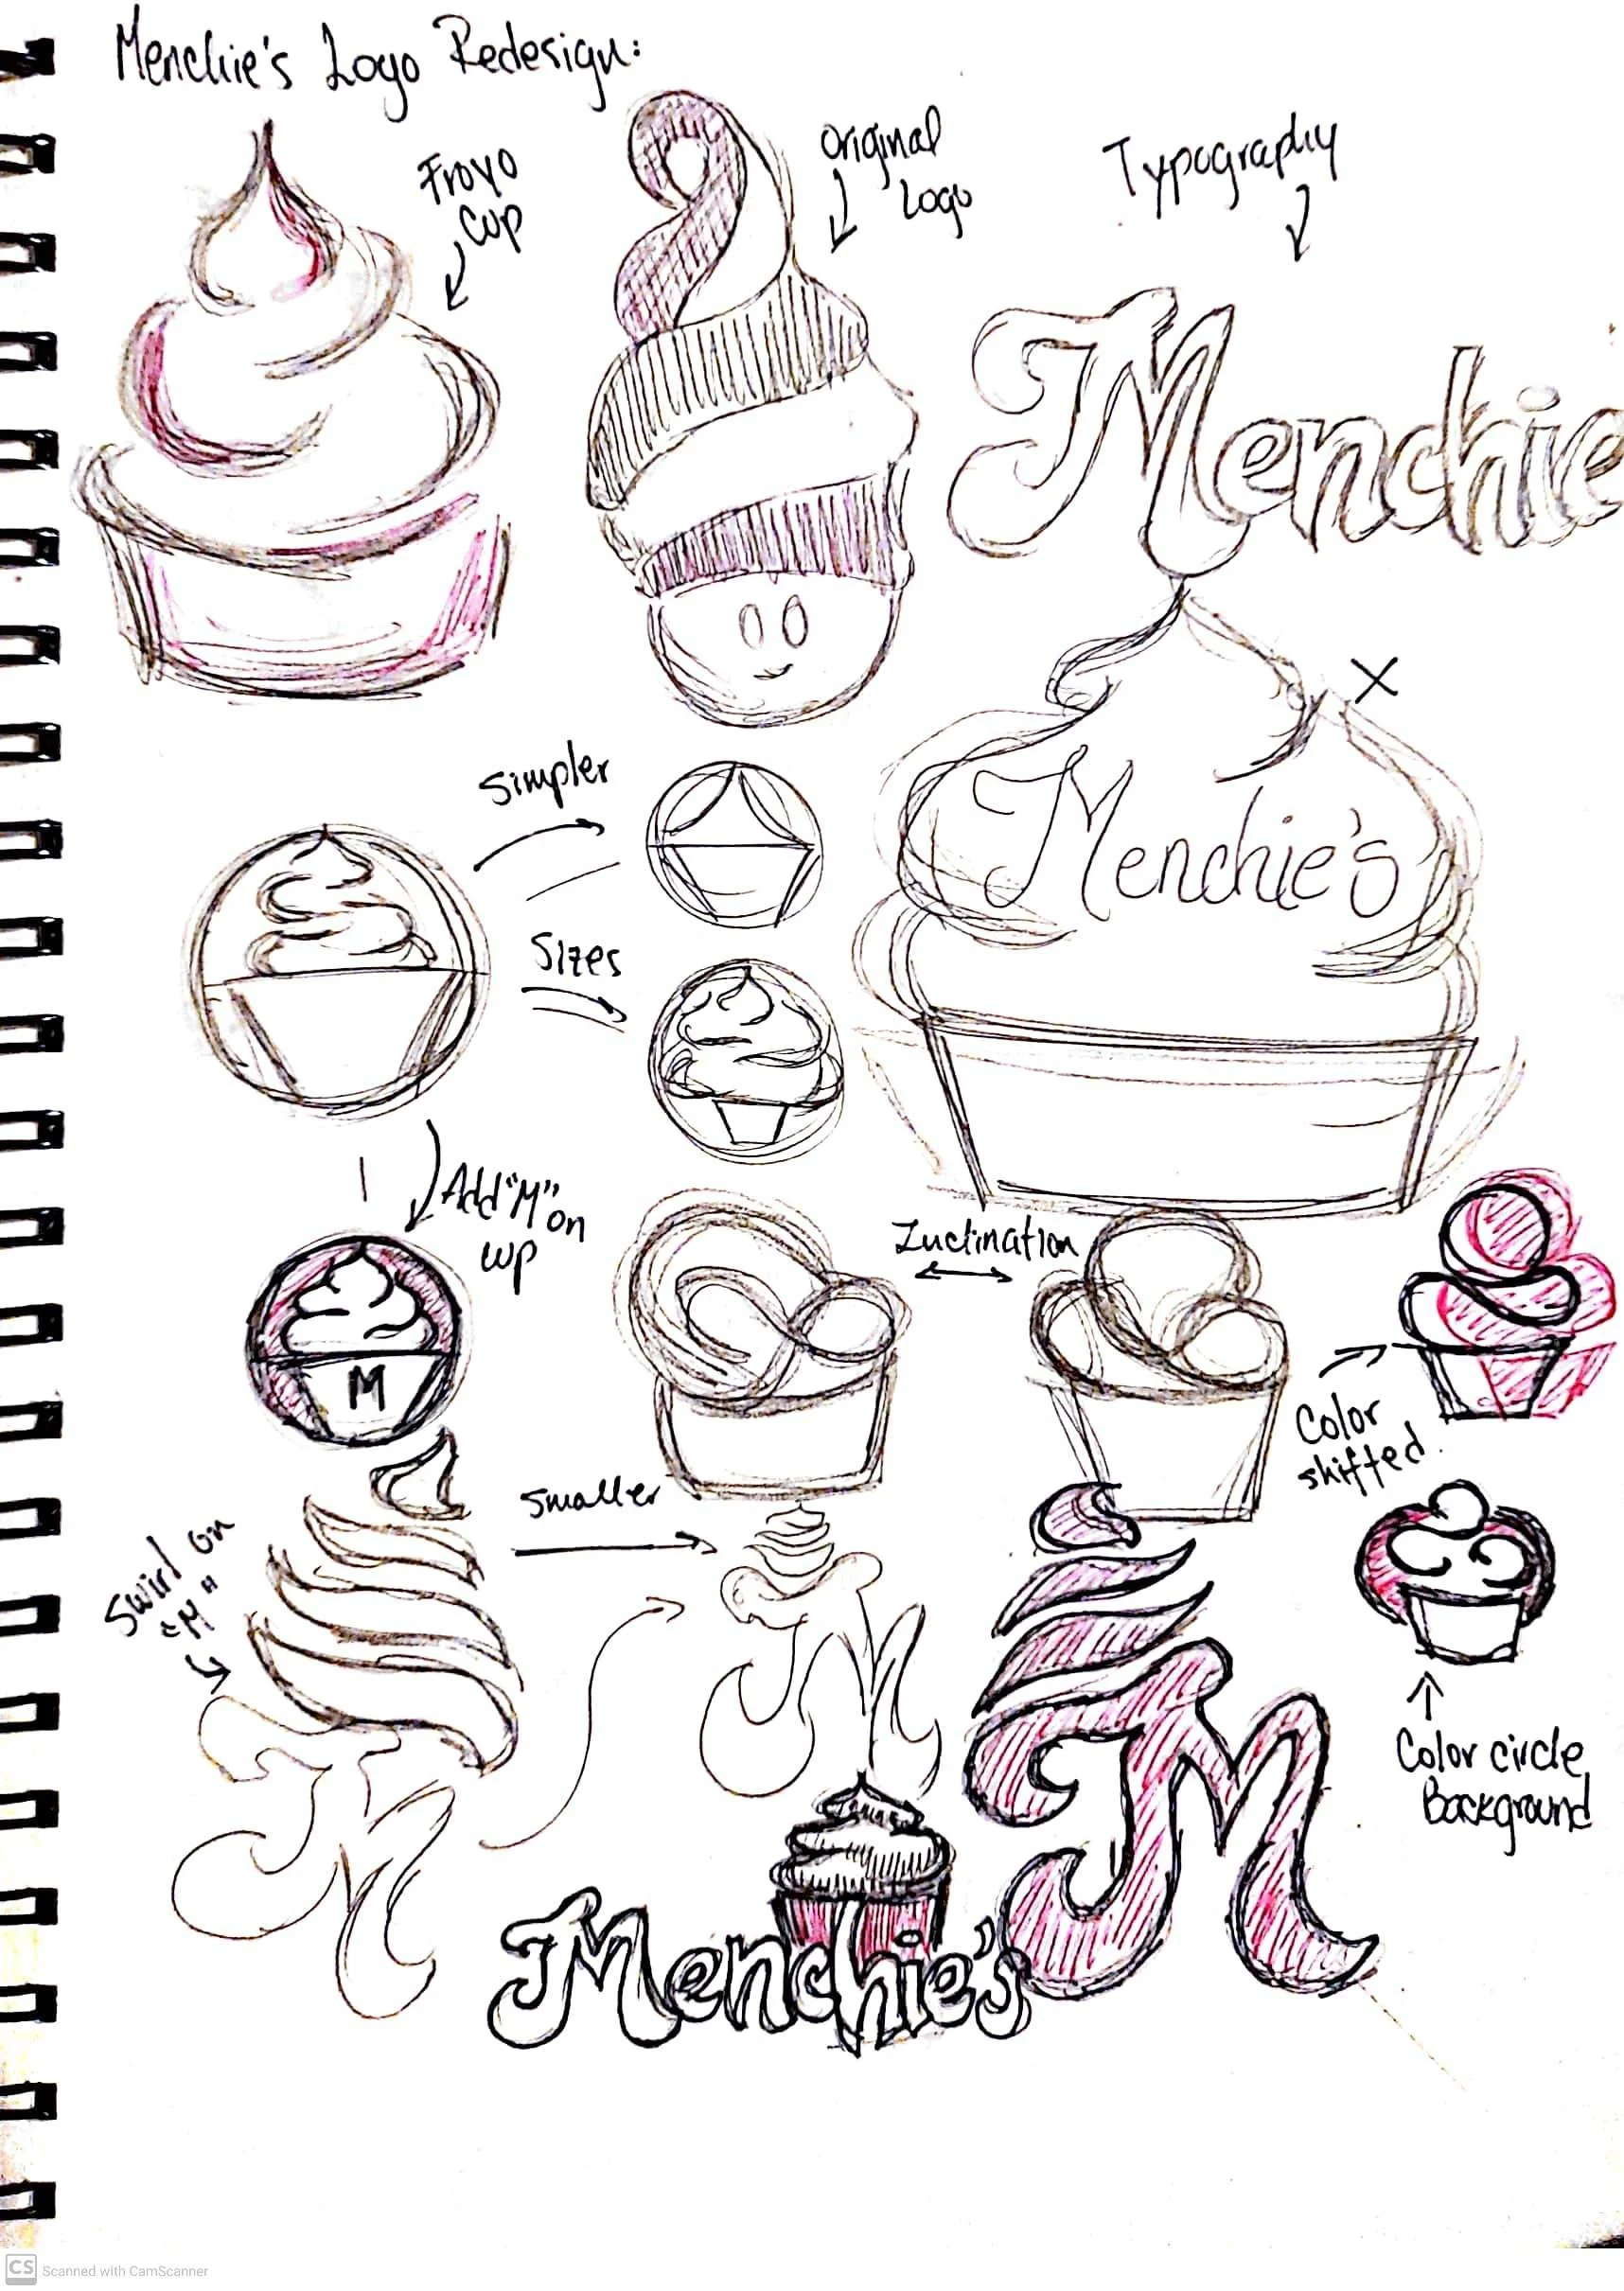 Menchie's Logo Redesign:
Froyo
Cup
Original
Logo
Typography
Menchie
X
Simpler
Menchie's
Sizes
Add "M"
on
cup
Inclination
M
Color
shifted.
Smaller
Swirl on
"M"
M
M
M
Color circle
Background
Menchie's
CS Scanned with CamScanner